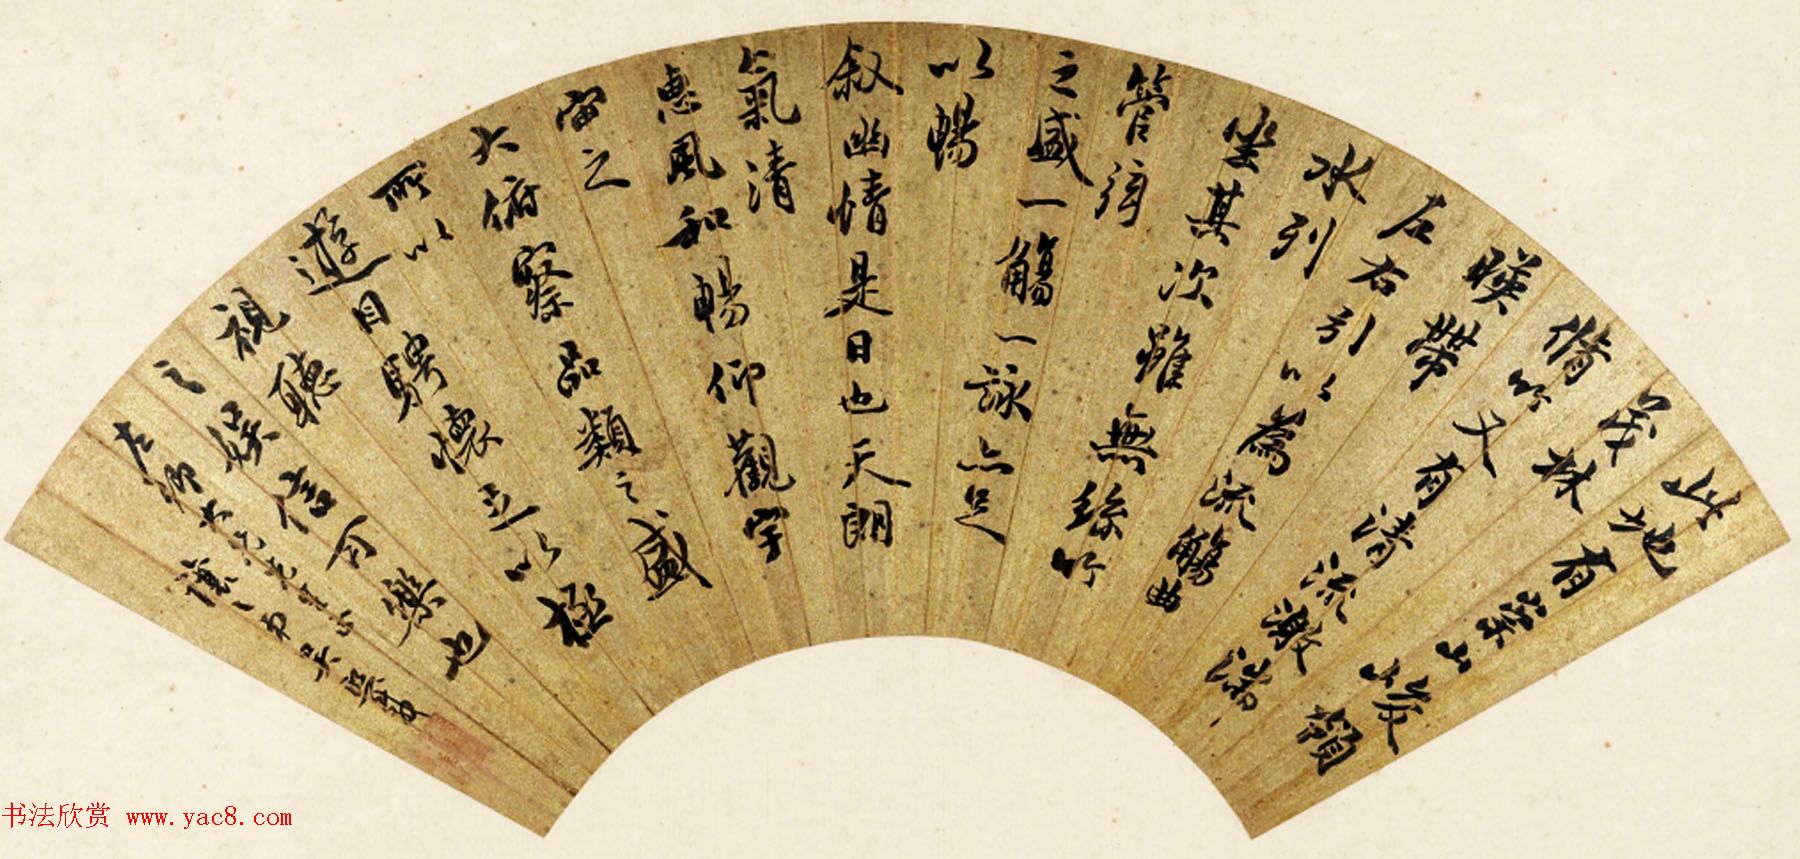 此地有崇山峻領
茂林
脩竹又有清流激湍
暎帶
左右引以為流觴曲
水列
坐其次雖無絲竹
管弦
之盛一觴一詠亦足
以暢
敘幽情是日也天朗
氣清
惠風和暢仰觀宇
宙之
大俯察品類之盛
所以
遊目騁懷足以極
視聽
之娛信可樂也
左卿大兄
讓之弟吳熙載
书法欣赏 www.yac8.com